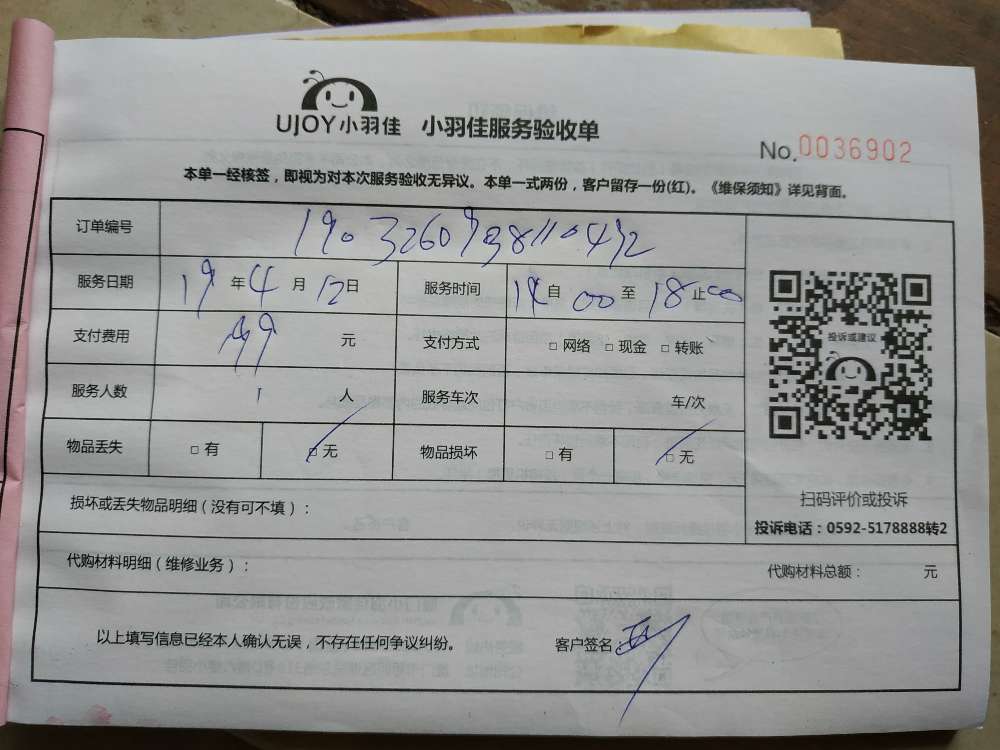 UJOY小羽佳 小羽佳服务验收单
No.0036902
本单一经核签，即视为对本次服务验收无异议。本单一式两份，客户留存一份(红)。《维保须知》详见背面。
订单编号
服务日期 19年4月12日 服务时间 14自00至18止00
支付费用 元 支付方式 □ 网络 □ 现金 □ 转账
服务人数 1 人 服务车次 车/次
物品丢失 □ 有 □ 无 物品损坏 □ 有 □ 无
投诉或建议
扫码评价或投诉
投诉电话：0592-5178888转2
损坏或丢失物品明细（没有可不填）：
代购材料明细（维修业务）： 代购材料总额： 元
以上填写信息已经本人确认无误，不存在任何争议纠纷。 客户签名：